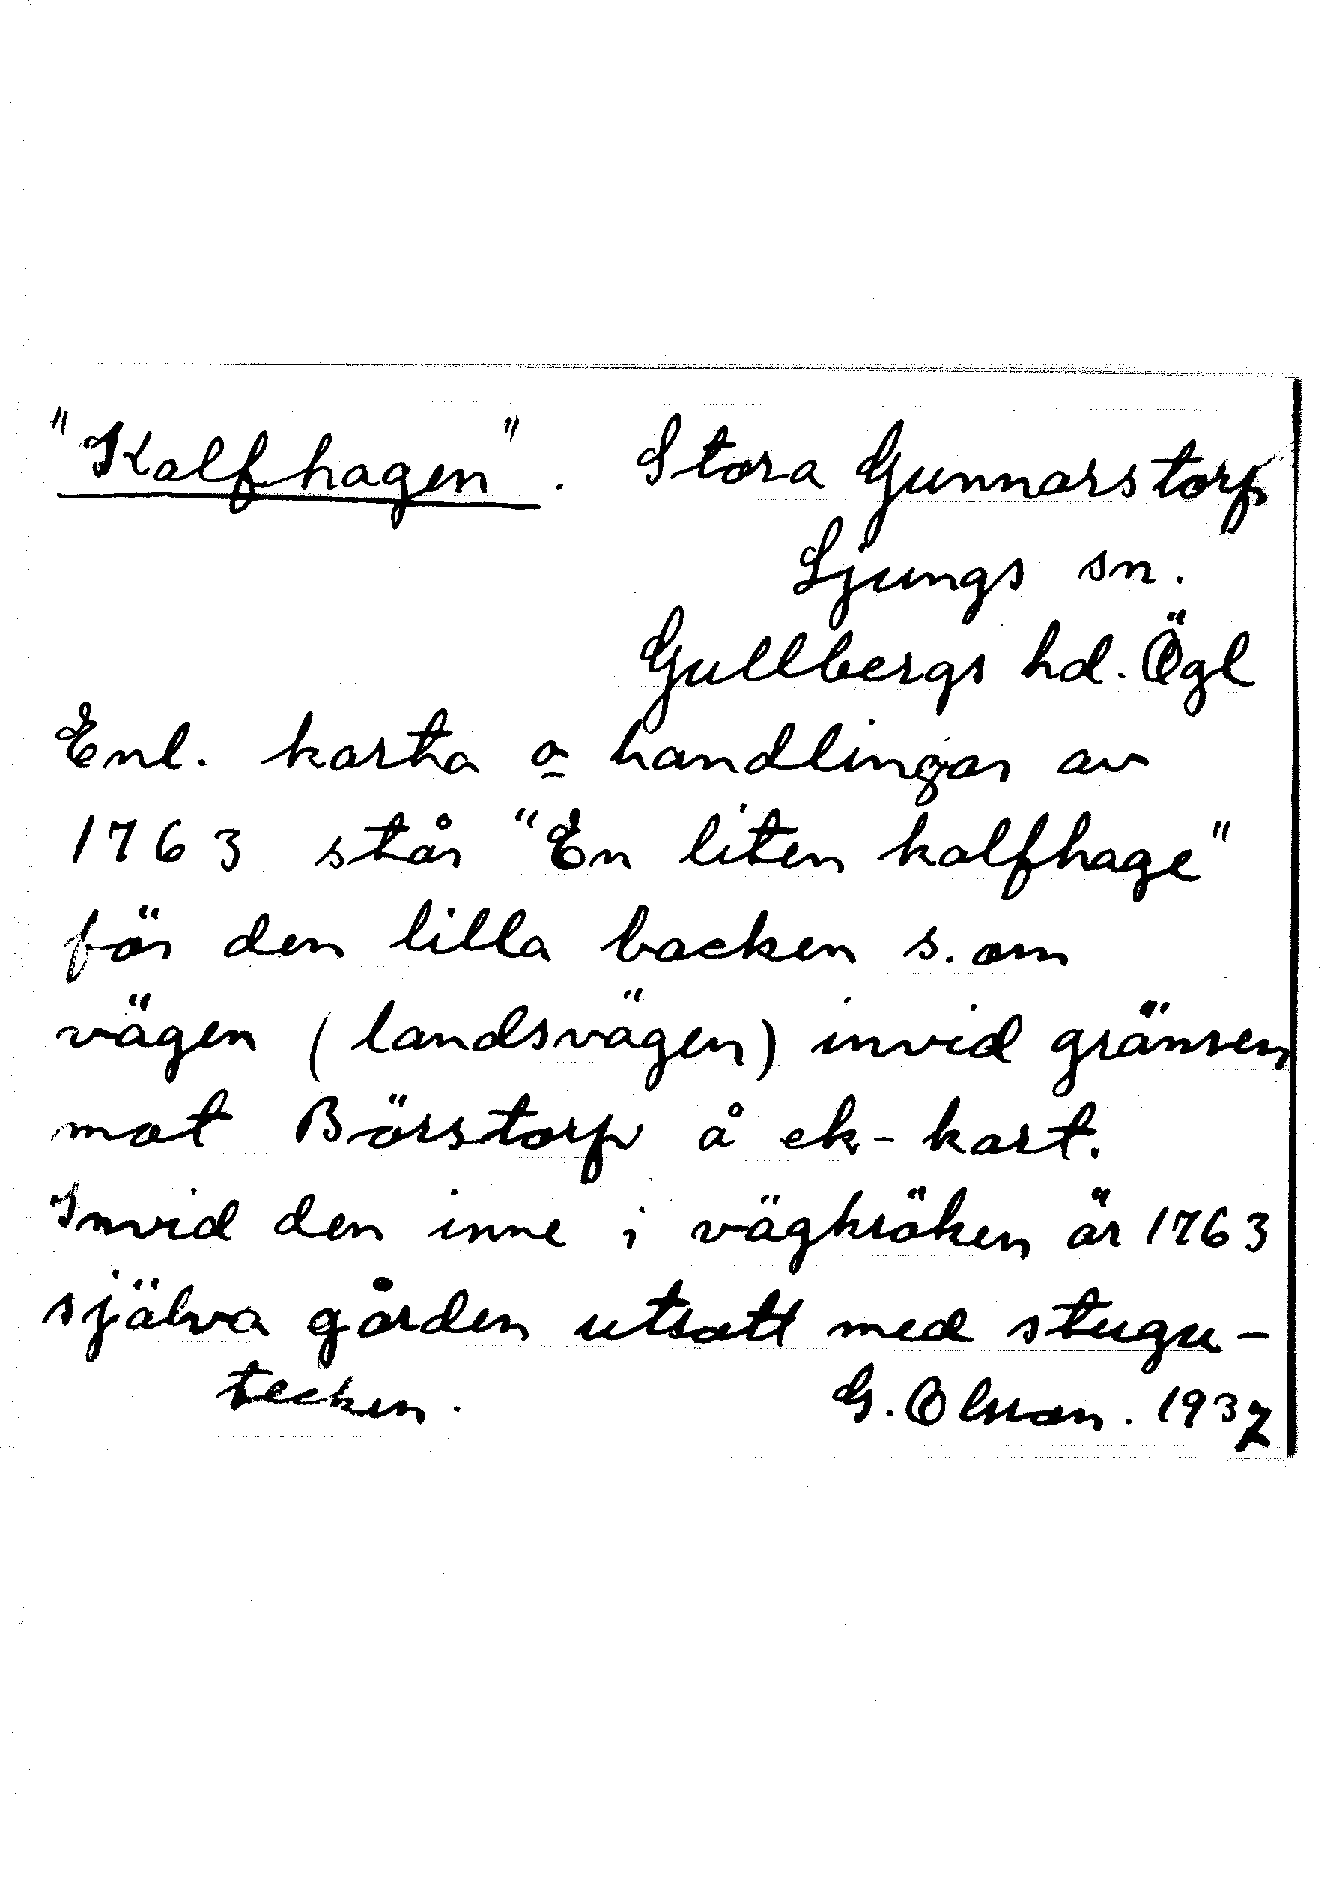 "Kalfhagen". Stora Gunnarstorp
Ljungs sn.
Gullbergs hd. Ögl
Enl. karta o handlingar av
1763 står "En liten kalfhage"
för den lilla backen s. om
vägen (landsvägen) invid gränsen
mot Börstorp å ek-kart.
Invid den inne i vägkröken är 1763
själva gården utsatt med stugu-
tecken. G. Olsson. 1937